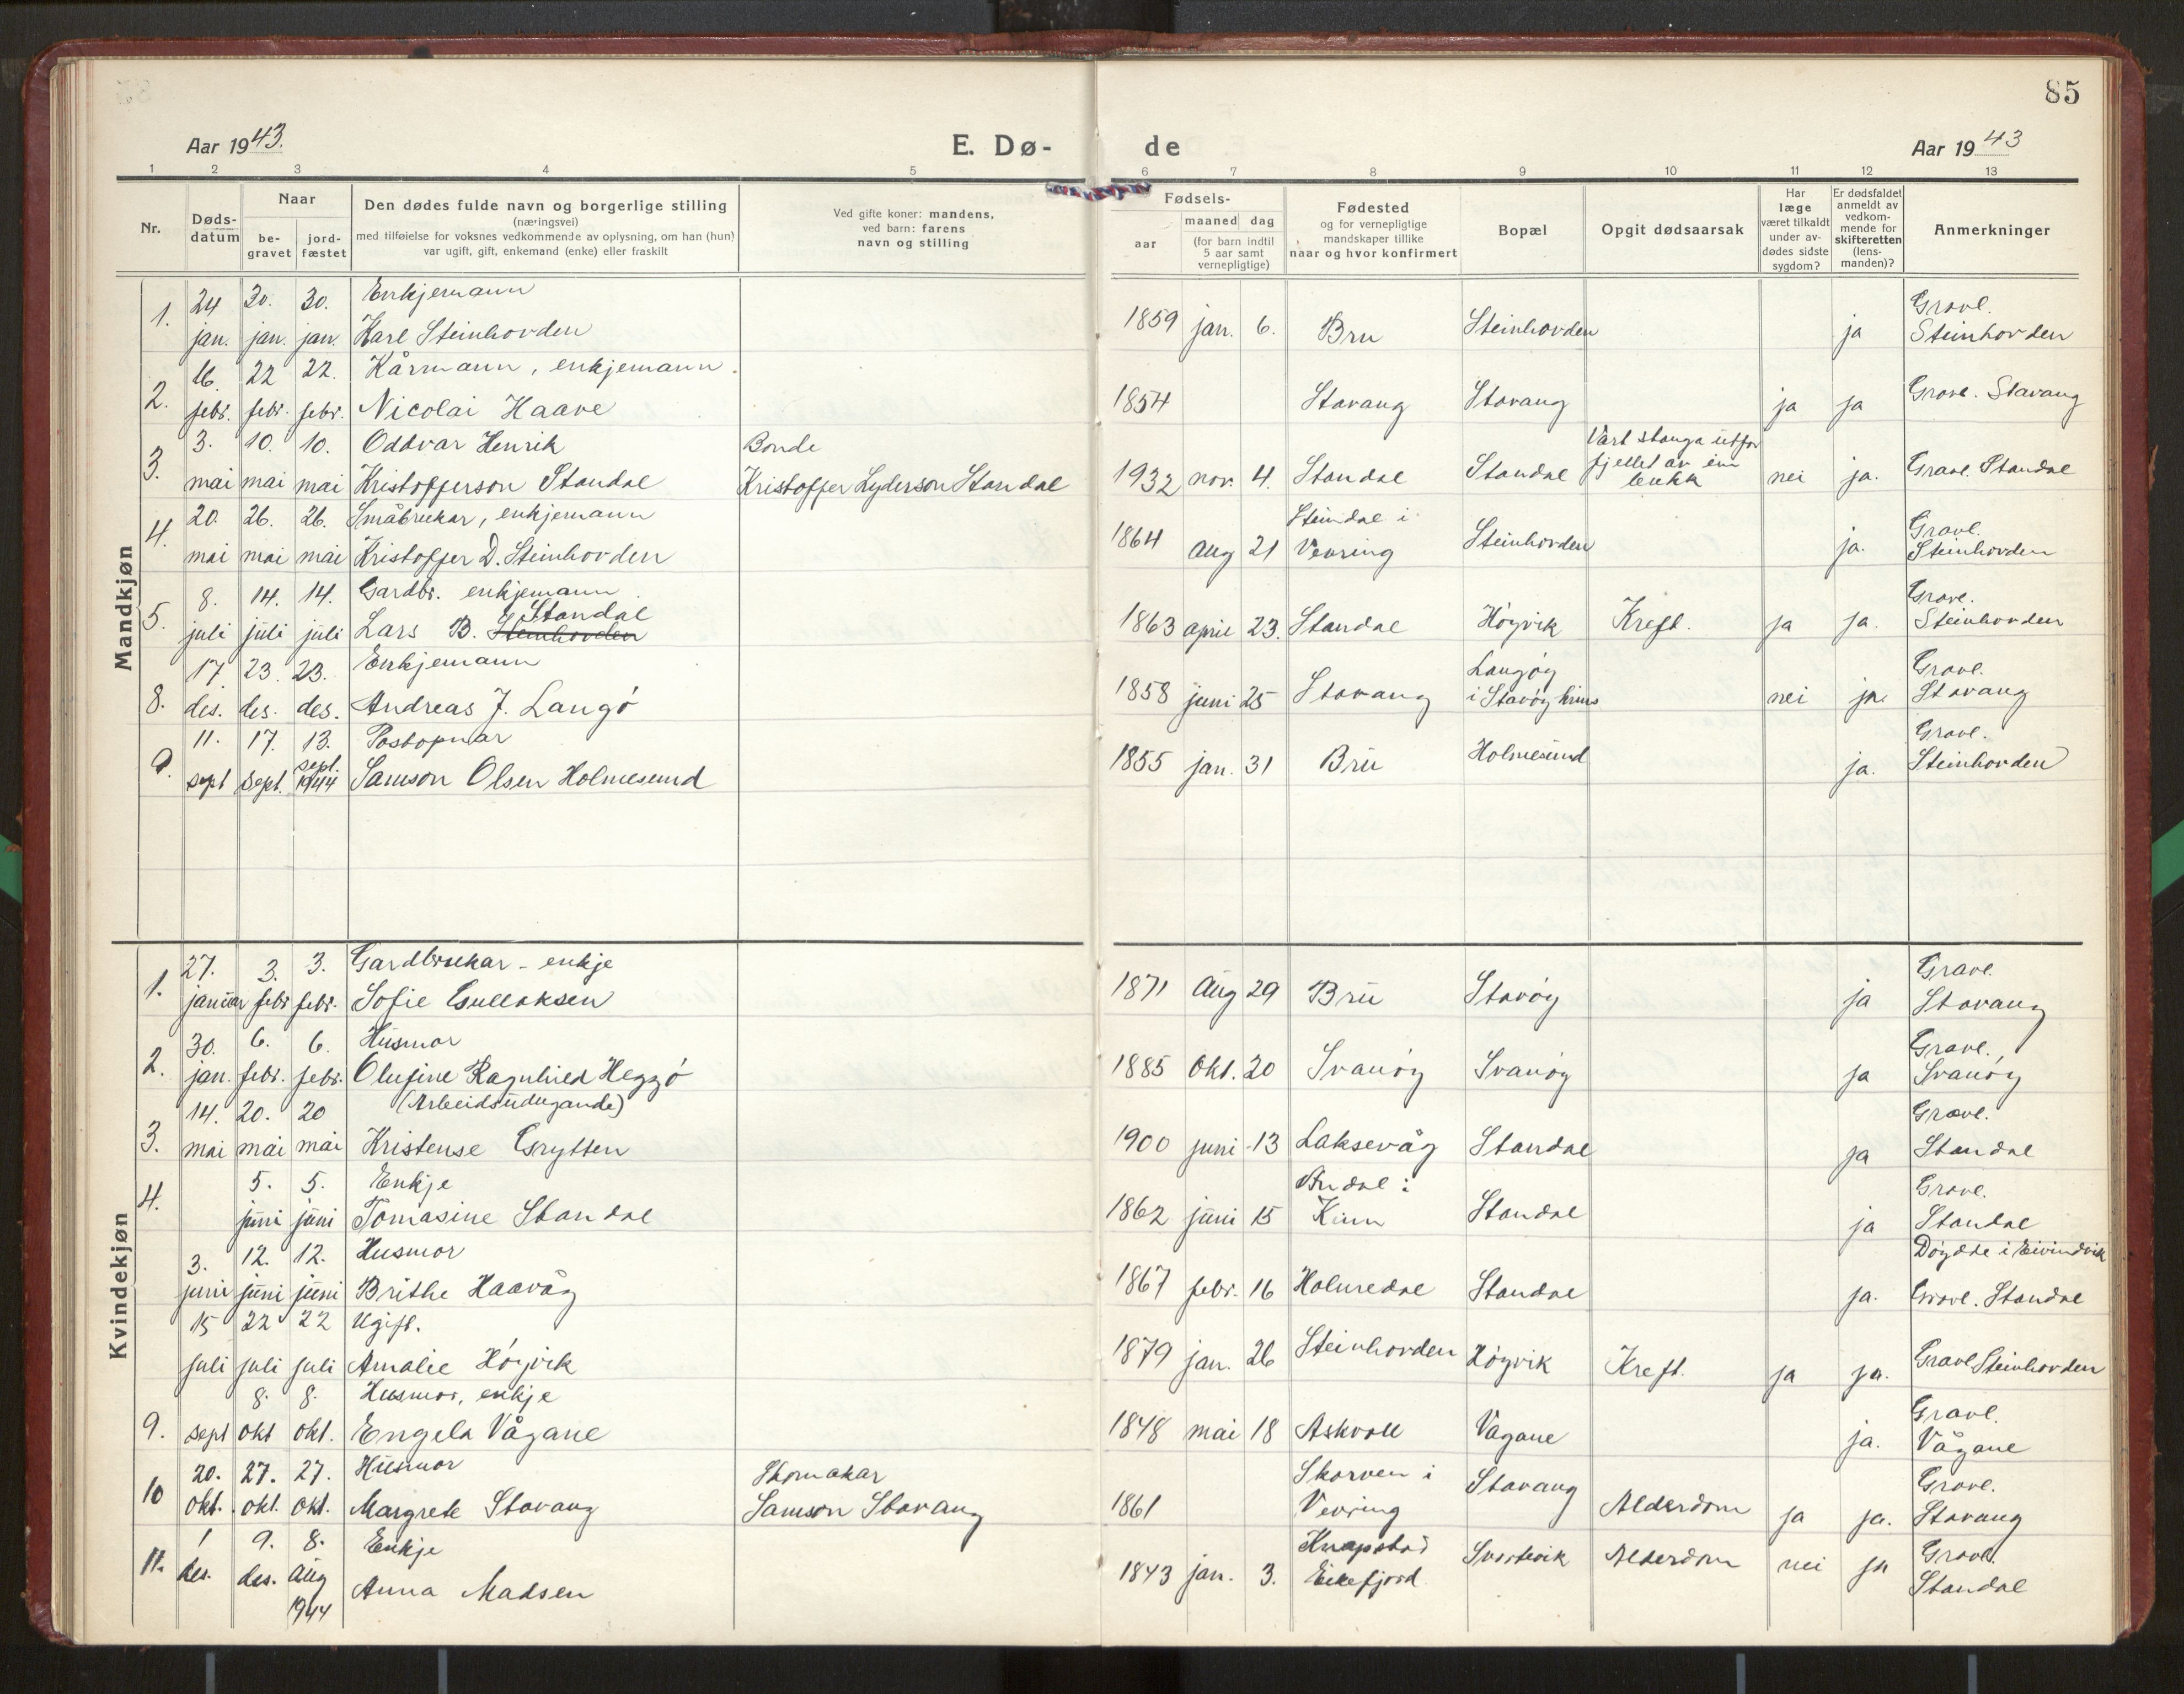 85
Aar 1943.
E. Dø-
de
Aar 1943
1 2 3 4 5 6 7 8 9 10 11 12 13
Nr.
Døds-
datum
Naar
be-
gravet
jord-
fæstet
Den dødes fulde navn og borgerlige stilling
(næringsvei)
med tilføielse for voksnes vedkommende av oplysning, om han (hun)
var ugift, gift, enkemand (enke) eller fraskilt
Ved gifte koner: mandens,
ved barn: farens
navn og stilling
Fødsels-
aar
maaned dag
(for barn indtil
5 aar samt
vernepligtige)
Fødested
og for vernepligtige
mandskaper tillike
naar og hvor konfirmert
Bopæl
Opgit dødsaarsak
Har
læge
været tilkaldt
under av-
dødes sidste
sygdom?
Er dødsfaldet
anmeldt av
vedkom-
mende for
skifteretten
(lens-
manden)?
Anmerkninger
Mandkjøn
1. 24 30. 30. Enkjemann
jan. jan. jan. Karl Steinhovden
1859 jan. 6. Bru Steinhovden ja Gravl.
Steinhovden
2. 16. 22 22. Kårmann, enkjemann.
febr. febr. febr. Nicolai Haave
1854 Stavang Stavang ja ja Gravl. Stavang
3. 3. 10. 10. Oddvar Henrik Bonde
mai mai mai Kristofferson Standal Kristoffer Lyderson Standal
1932 nov. 4. Standal Standal Vart stanga utfor
fjellet av ein
bukk nei ja. Gravl. Standal
4. 20. 26. 26. Småbrukar, enkjemann
mai mai mai Kristoffer D. Steinhovden
1864 aug 21 Steindal i
Vevring Steinhovden ja. Gravl.
Steinhovden
5. 8. 14. 14. Gardbr. enkjemann.
Standal
juli juli juli Lars B. Steinhovden
1863 april 23. Standal Høyvik Kreft. ja ja. Gravl.
Steinhovden
8. 17 23. 23. Enkjemann
des. des. des. Andreas J. Langø
1858 juni 25 Stavang Langøy
i Stavøy krins nei ja. Gravl.
Stavang
9. 11. 17. 13. Postopnar
sept sept. sept.
1944 Samson Olsen Holmesund
1855 jan. 31 Bru Holmesund ja. Gravl.
Steinhovden
Kvindekjøn
1. 27. 3. 3. Gardbrukar - enkje
januar febr febr. Sofie Gullaksen
1871 Aug 29 Bru Stavøy ja Gravl.
Stavang
2. 30. 6. 6. Husmor
jan. febr. febr. Olufine Ragnhild Heggø
1885 Okt. 20 Svanøy Svanøy ja Gravl.
Svanøy
3. 14. 20. 20 (Arbeidsudugande)
mai mai mai Kristense Grytten
1900 juni 13 Laksevåg Standal ja Gravl.
Standal
4. 5. 5. Enkje
juni juni Tomasine Standal
1862 juni 15 i
Kinn Standal ja Gravl.
Standal
3. 12. 12. Husmor
juni juni juni Brithe Haavåg
1867 febr. 16 Holmedal Standal ja. Døydde i Eivindvik
Gravl. Standal
15 22 22 Ugift.
juli juli juli Amalie Høyvik
1879 jan. 26 Steinhovden Høyvik Kreft. ja ja. Gravl Steinhovden
9. 8. 8. Husmor, enkje
sept okt okt. Engela Vågane
1848 mai 18 Askvoll Vågane ja. Gravl.
Vågane
10 20. 27. 27. Husmor Skomakar
okt. okt. okt. Margrete Stavang Samson Stavang
1861 Skorven i
Vevring Stavang Alderdom ja ja. Gravl.
Stavang
11. 1 9. 8. Enkje
des. des. Aug
1944 Anna Madsen
1843 jan. 3. Knapstad
Eikefjord Svartevik Alderdom nei ja Gravl.
Standal